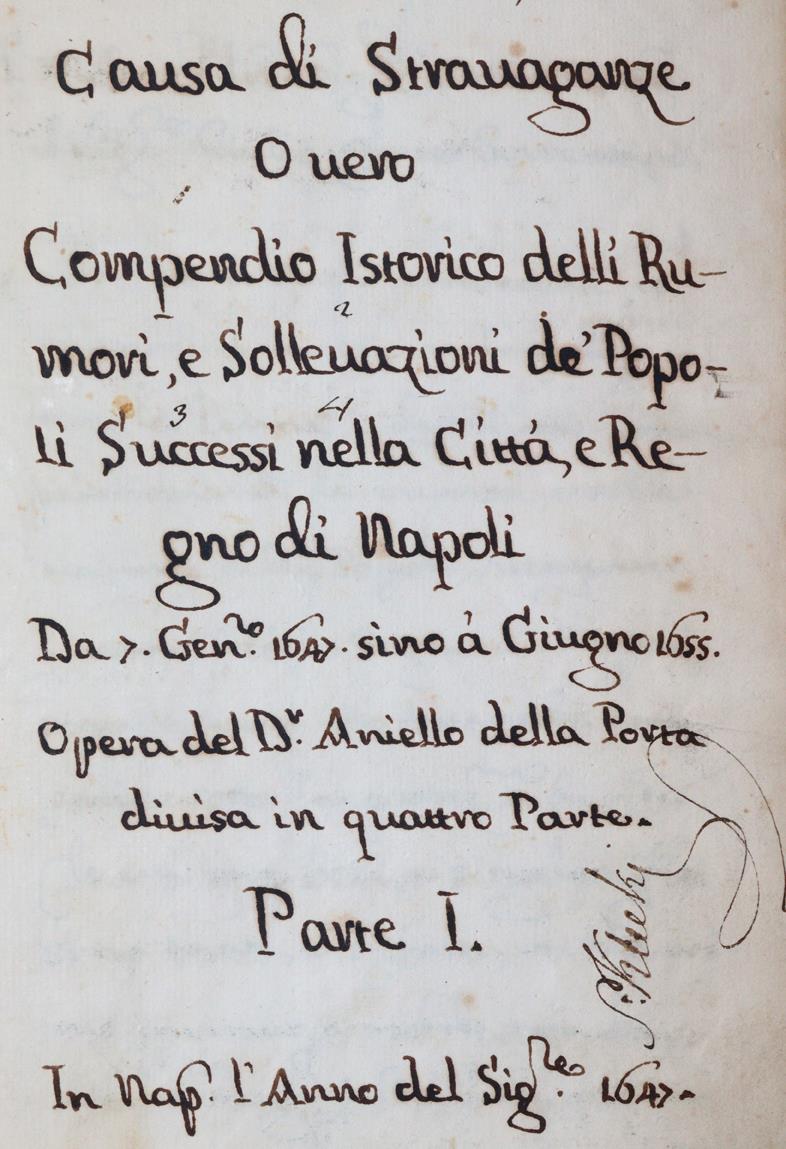 Causa di Strauaganze
Ouero
Compendio Istorico delli Ru-
2
mori, e Solleuazioni de' Popo-
3 4
li Successi nella Cittá, e Re-
gno di Napoli
Da 7. Gen.ro 1647. sino à Giugno 1655.
Opera del D.r Aniello della Porta
diuisa in quattro Parte.
Parte I.
In Nap. l'Anno del Sig.re 1647.